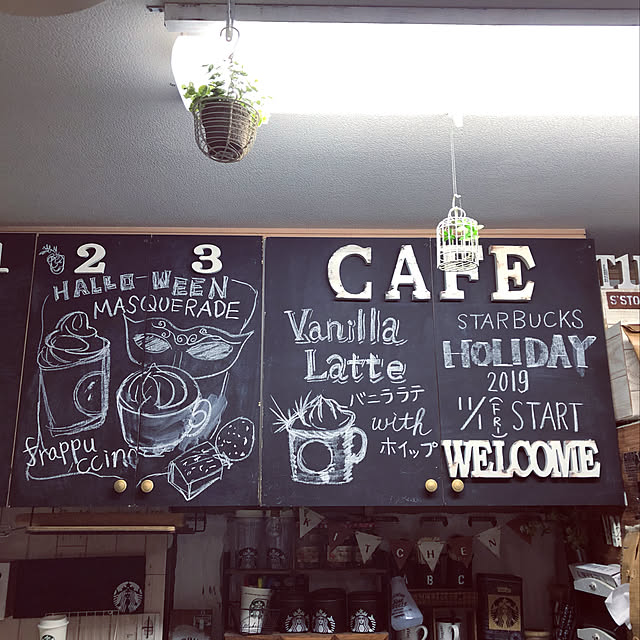 1
2 3
HALLO-WEEN
MASQUERADE
frappu
ccino
CAFE
Vanilla
Latte
バニララテ
with
ホイップ
STARBUCKS
HOLIDAY
2019
11/1 (FRI) START
WELCOME
S'STO
KITCHEN
ABC